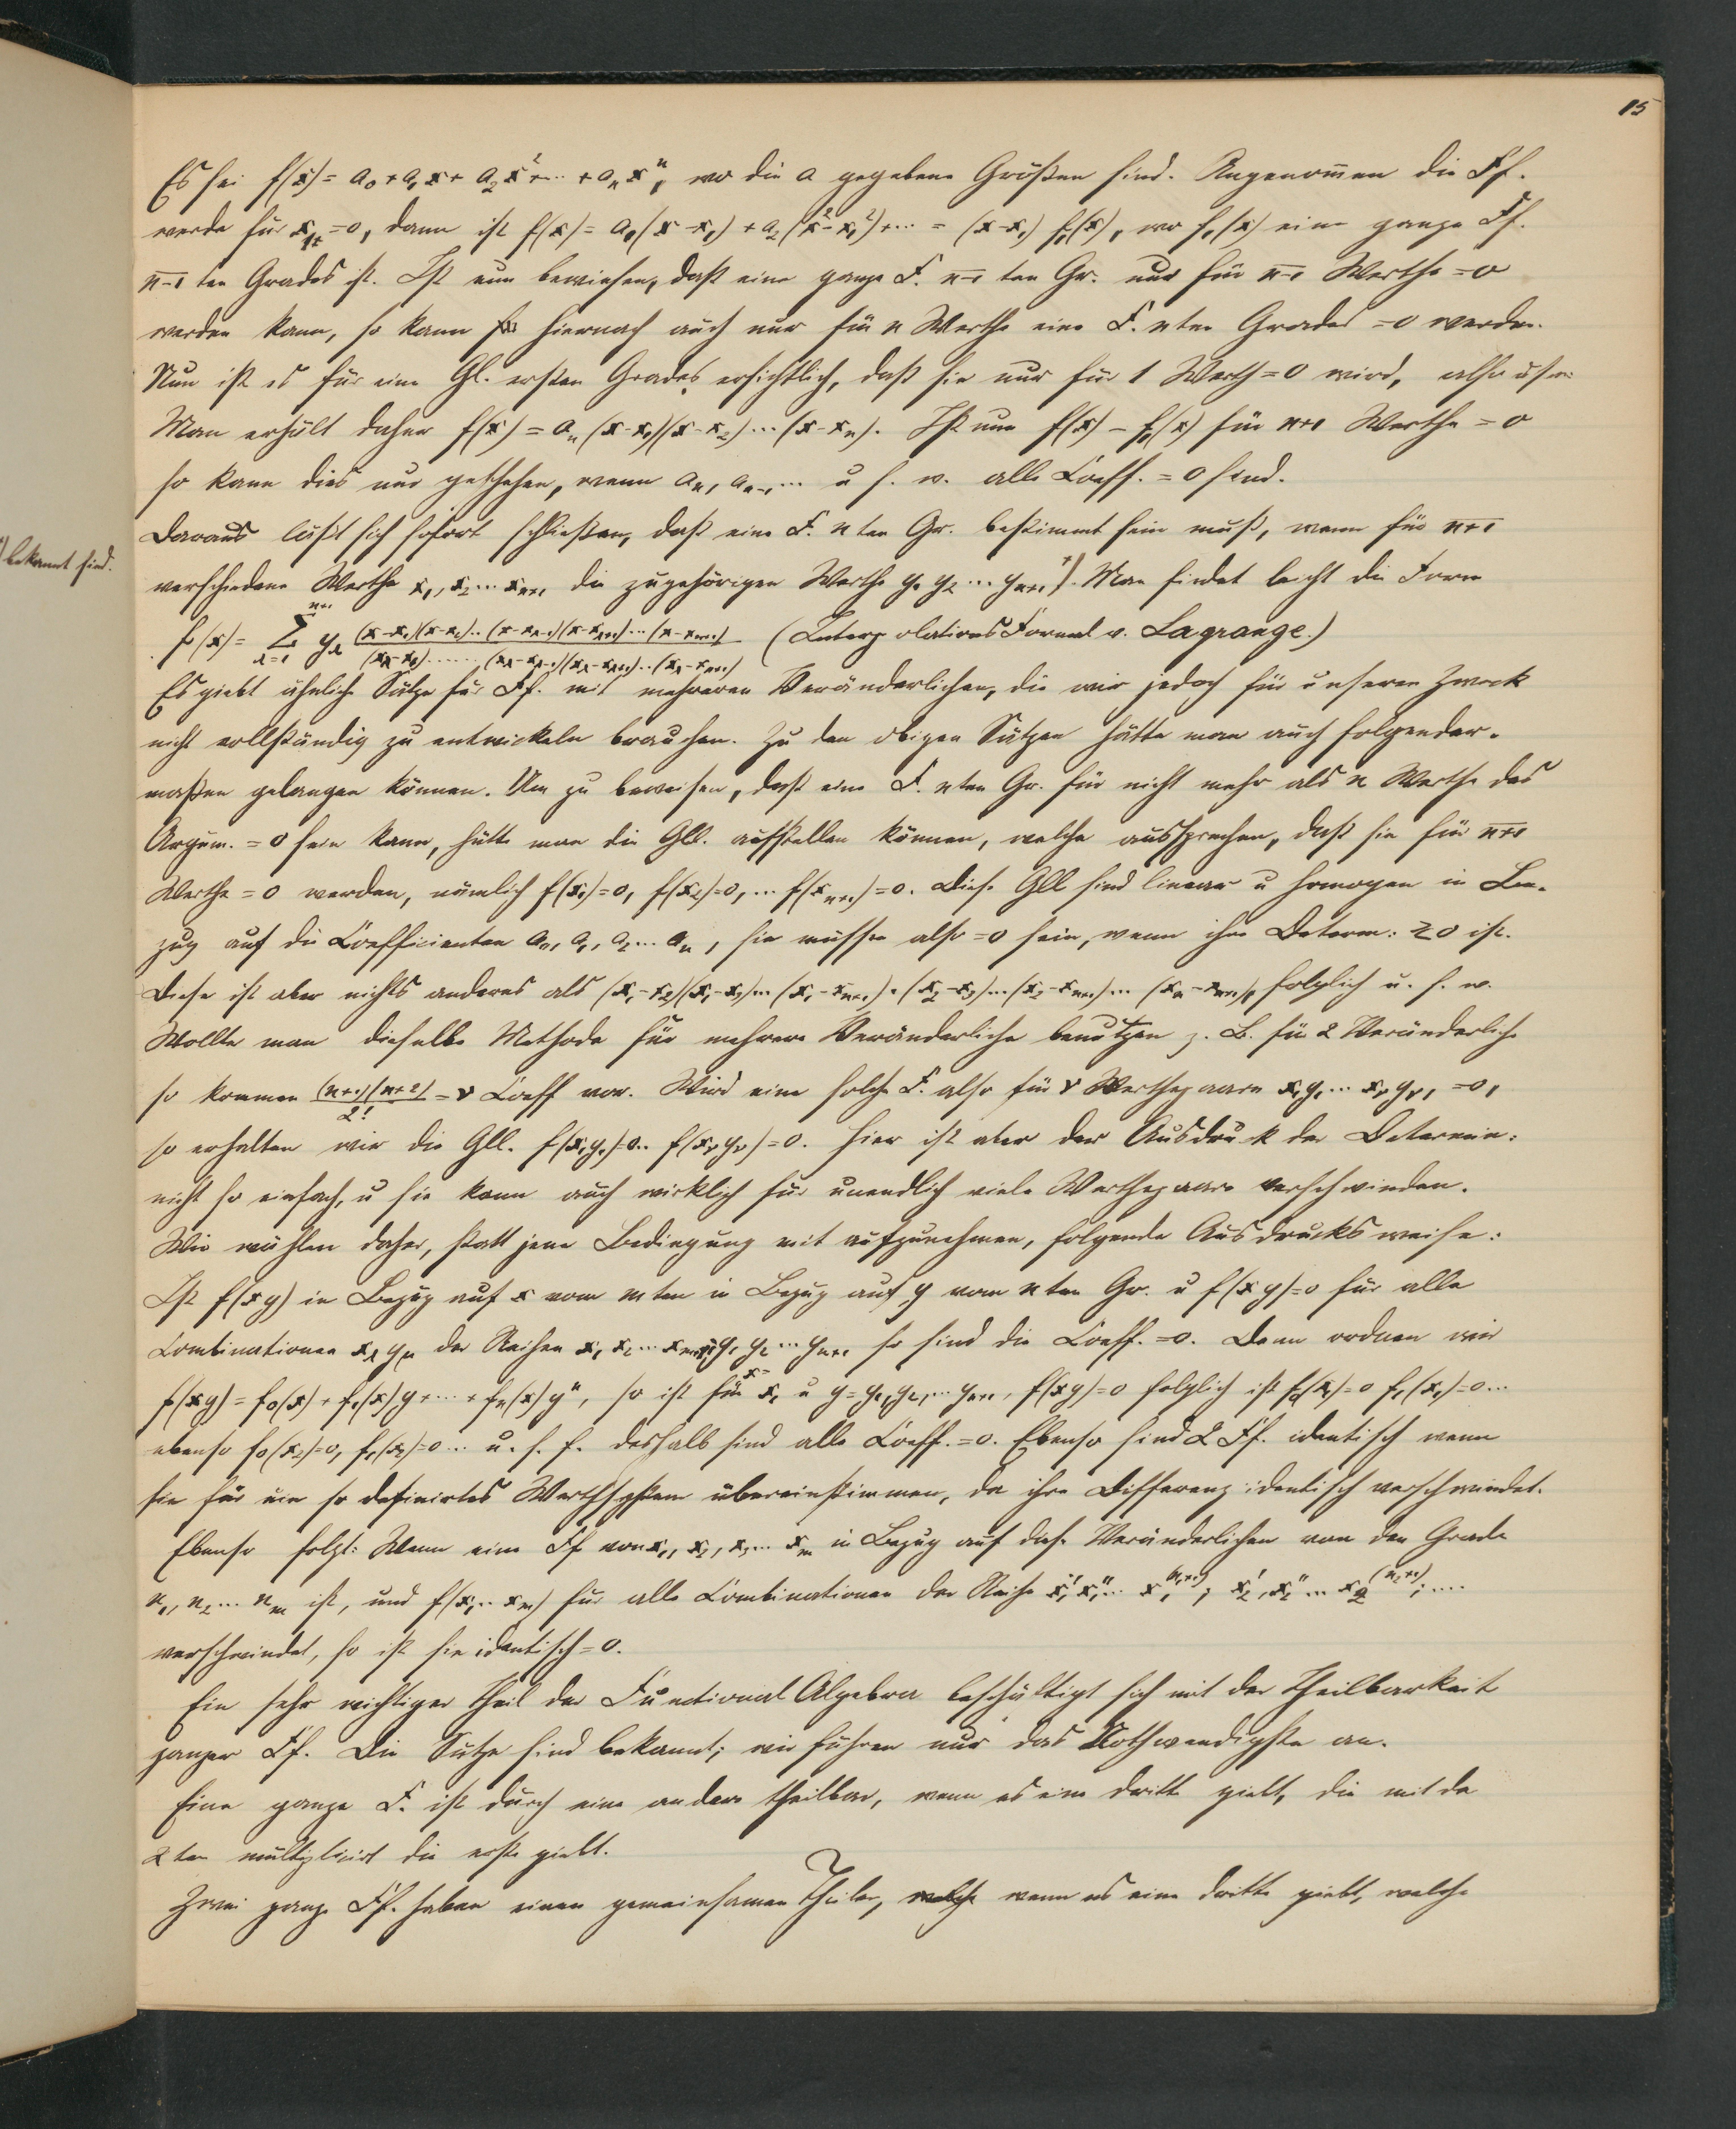 15
Es sei f(x) = a₀ + a₁x + a₂x² + ... + aₙxⁿ, wo die a gegebene Größen sind. Angenom̄en die Ff.
werde für x₁ = 0, dann ist f(x) = a₁(x-x₁) + a₂(x²-x₁²) + ... = (x-x₁) f₁(x), wo f₁(x) eine ganze Ff.
n-1 ten Grades ist. Ist nun bewiesen, daß eine ganze F. n-1 ten Gr. nur für n-1 Werthe = 0
werden kann, so kann hiernach auch nur für n Werthe eine F. nten Grades = 0 werden.
Nun ist es für eine Gl. ersten Grades ersichtlich, daß sie nur für 1 Werth = 0 wird, also usw.
Man erhält daher f(x) = aₙ(x-x₁)(x-x₂)...(x-xₙ). Ist nun f(x) - f₁(x) für n+1 Werthe = 0
so kann dies nur geschehen, wenn aₙ, aₙ₋₁... u s. w. alle Coeff. = 0 sind.
Daraus läßt sich sofort schließen, daß eine F. n ten Gr. bestimmt sein muß, wenn für n+1
verschiedene Werthe x₁, x₂ ... xₙ₊₁ die zugehörigen Werthe y₁ y₂ ... yₙ₊₁ *). Man findet leicht die Form
*) bekannt sind.
f(x) = Σ_{λ=1}^{n+1} y_λ (x-x₁)(x-x₂)..(x-x_{λ-1})(x-x_{λ+1})...(x-xₙ₊₁) / (x_λ-x₁)......(x_λ-x_{λ-1})(x_λ-x_{λ+1})..(x_λ-xₙ₊₁) (Interpolations Formel v. Lagrange.)
Es giebt ähnliche Sätze für Ff. mit mehreren Veränderlichen, die wir jedoch für unseren Zweck
nicht vollständig zu entwickeln brauchen. Zu den obigen Sätzen hätte man auch folgender-
maßen gelangen können. Um zu beweisen, daß eine F. nten Gr. für nicht mehr als n Werthe des
Argum. = 0 sein kann, hätte man die Gll. aufstellen können, welche aussprechen, daß sie für n+1
Werthe = 0 werden, nämlich f(x₁)=0, f(x₂)=0, ... f(xₙ₊₁)=0. Diese Gll sind linear u homogen in Be-
zug auf die Coefficienten a₀, a₁, a₂ ... aₙ, sie müssen also = 0 sein, wenn ihre Determ: ≷ 0 ist.
Diese ist aber nichts anderes als (x₁-x₂)(x₁-x₃)...(x₁-xₙ₊₁)·(x₂-x₃)...(x₂-xₙ₊₁)...(xₙ-xₙ₊₁), folglich u. s. w.
Wollte man dieselbe Methode für mehrere Veränderliche benutzen z. B. für 2 Veränderliche
so kommen (n+1)(n+2)/2! = ν Coeff vor. Wird eine solche F. also für ν Werthepaare x₁y₁ ... x_ν y_ν, = 0,
so erhalten wir die Gll. f(x₁y₁)=0.. f(x_ν y_ν)=0. Hier ist aber der Ausdruck der Determin:
nicht so einfach, u sie kann auch wirklich für unendlich viele Werthepaare verschwinden.
Wir wählen daher, statt jene Bedingung mit aufzunehmen, folgende Ausdrucksweise:
Ist f(xy) in Bezug auf x vom mten in Bezug auf y vom nten Gr. u f(xy)=0 für alle
Combinationen x_λ y_μ der Reihen x₁ x₂ ... xₘ₊₁, y₁ y₂ ... yₙ₊₁ so sind die Coeff. = 0. Denn ordnen wir
f(xy) = f₀(x) + f₁(x)y + ... + fₙ(x)yⁿ, so ist für x= x₁ u y = y₁, y₂, ... yₙ₊₁, f(xy)=0 folglich ist f₀(x₁)=0 f₁(x₁)=0...
ebenso f₀(x₂)=0, f₁(x₂)=0... u. s. f. deshalb sind alle Coeff. = 0. Ebenso sind 2 Ff. identisch wenn
sie für ein so definirtes Werthsystem übereinstimmen, da ihre Differenz identisch verschwindet.
Ebenso folgt: Wenn eine Ff von x₁, x₂, x₃ ... xₘ in Bezug auf diese Veränderlichen von dem Grade
n₁, n₂ ... nₘ ist, und f(x₁... xₘ) für alle Combinationen der Reihe x₁' x₁''... x₁^(n₁+1); x₂', x₂''... x₂^(n₂+1); ....
verschwindet, so ist sie identisch = 0.
Ein sehr wichtiger Theil der Functional Algebra beschäftigt sich mit der Theilbarkeit
ganzer Ff. Die Sätze sind bekannt; wir führen nur das Nothwendigste an.
Eine ganze F. ist durch eine andere theilbar, wenn es eine dritte giebt, die mit de
2ten multiplicirt die erste giebt.
Zwei ganze Ff. haben einen gemeinsamen Theiler, welche wenn es eine dritte giebt, welche